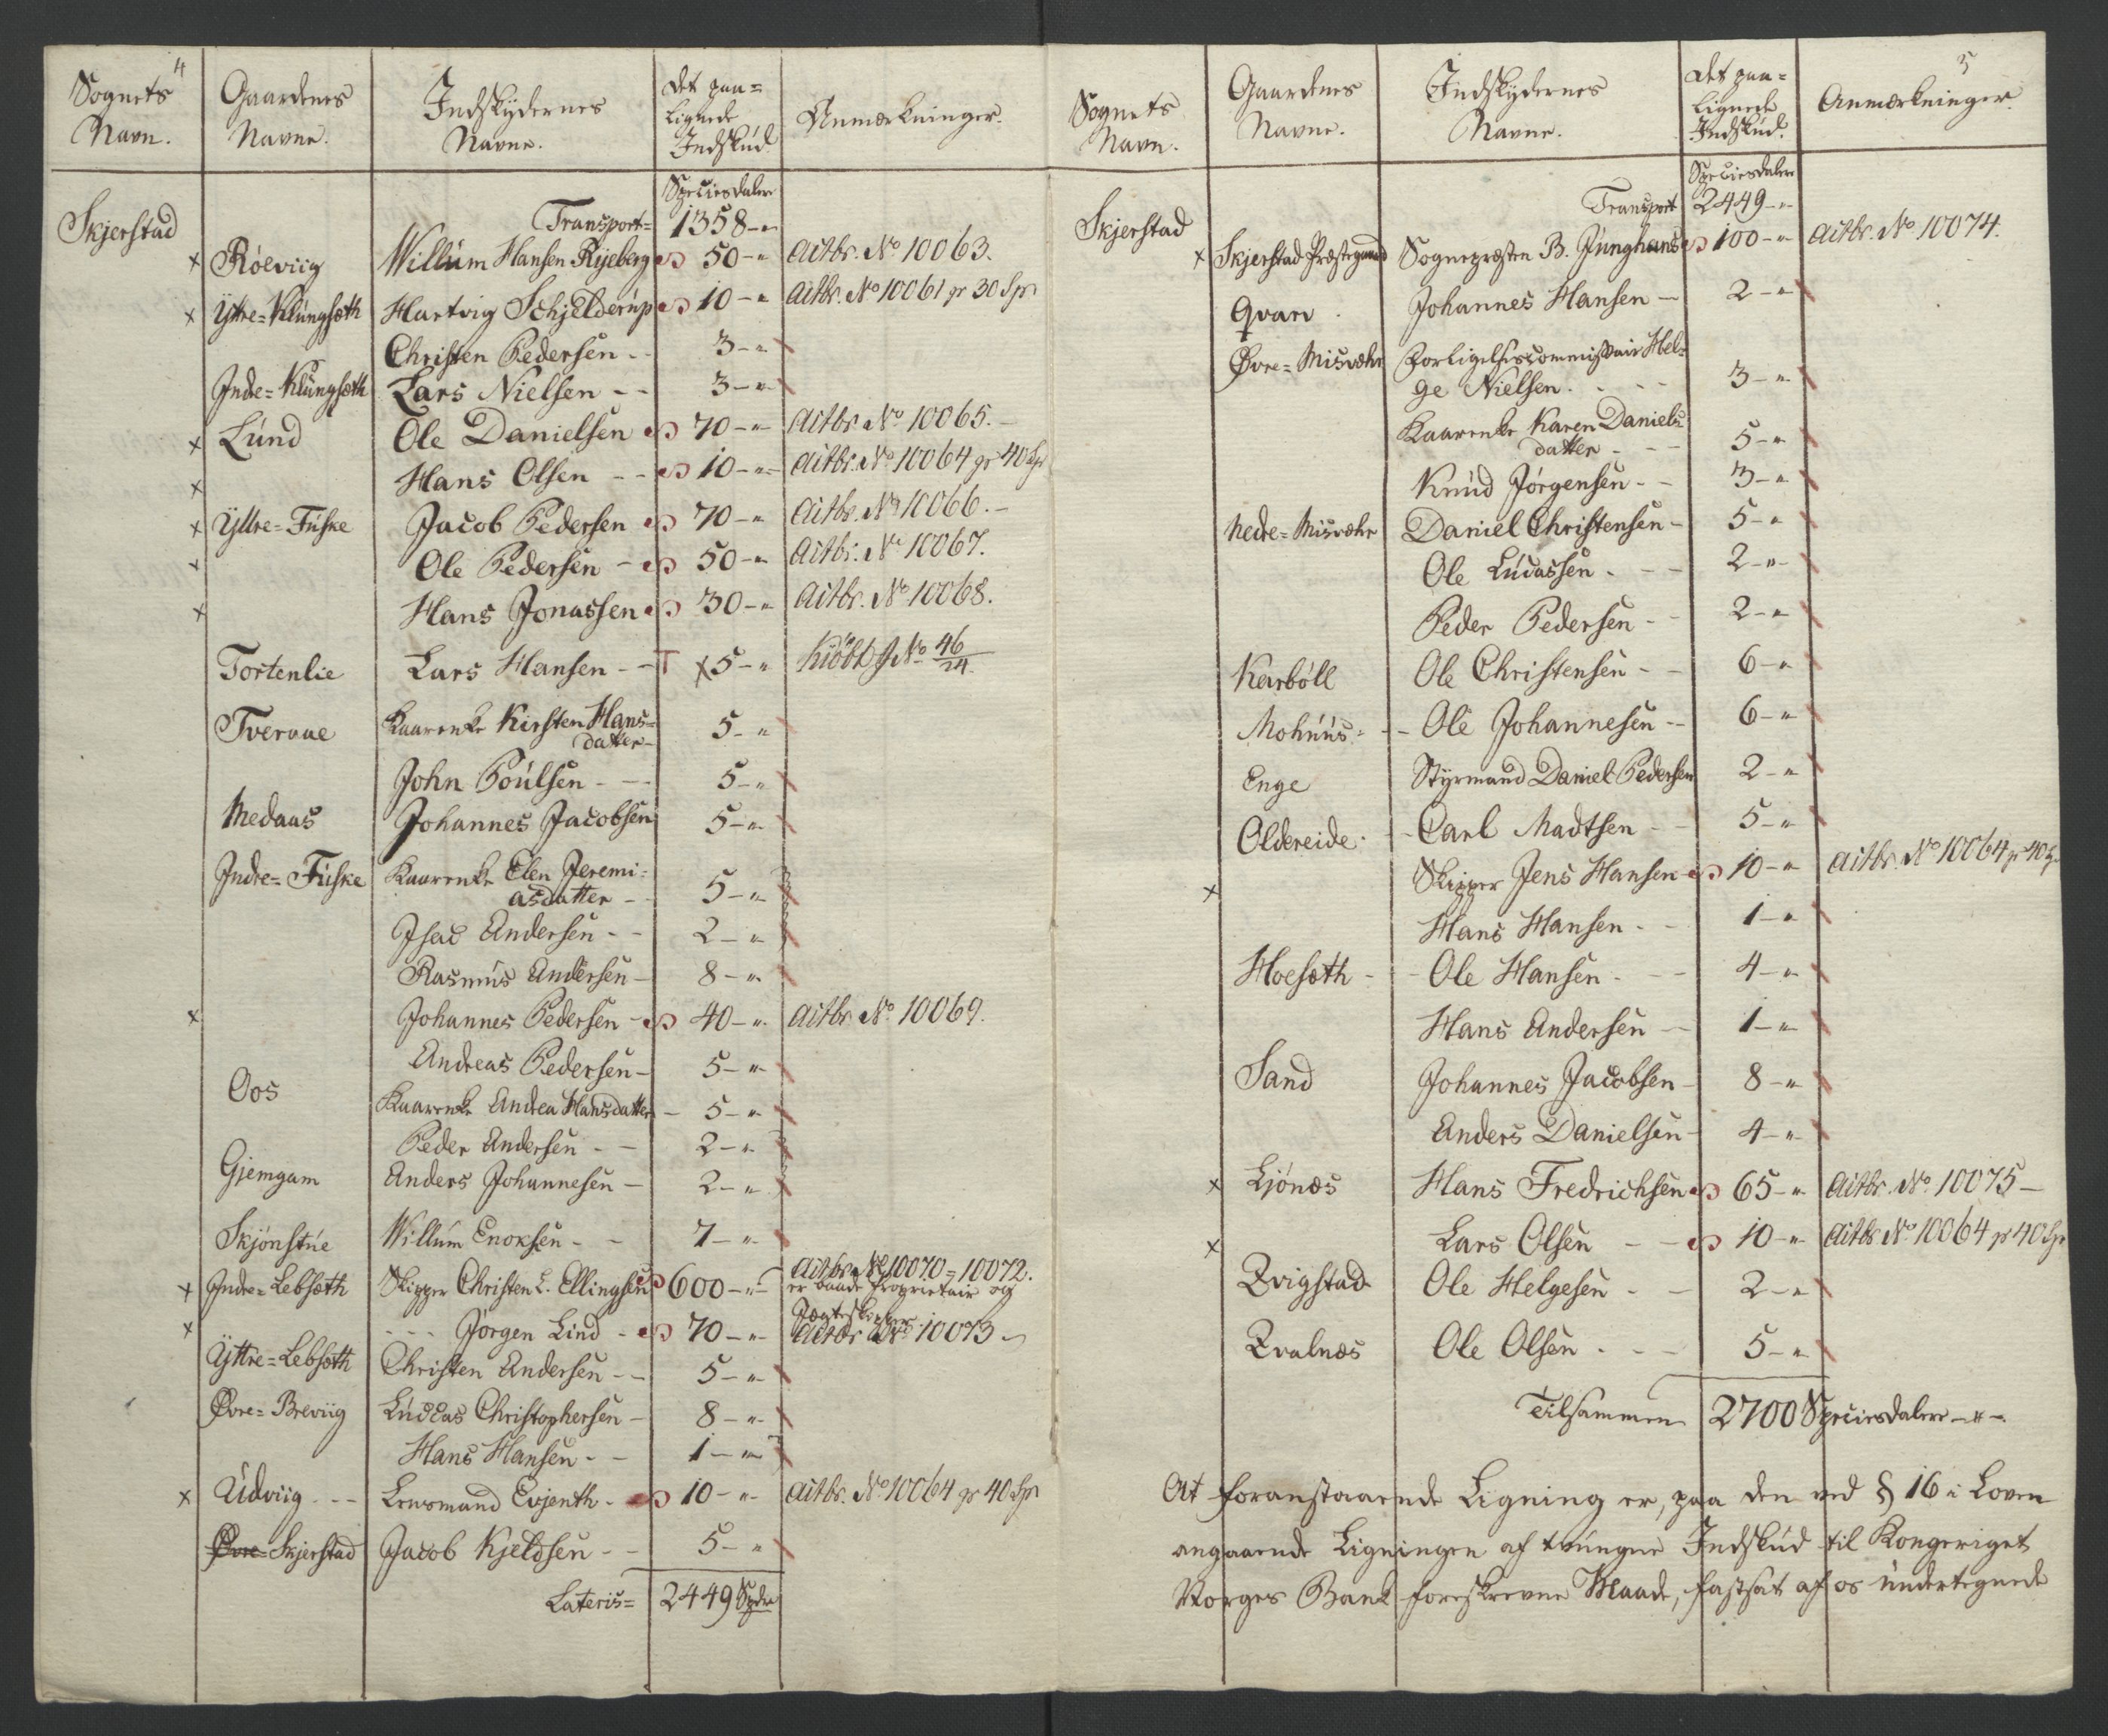 4
Sognets Navn. Gaardenes Navne. Indskydernes Navne. Det paa=lignede Indskud Anmærkninger.
Speciesdaler
Skjerstad Transport= 1358-"
x Röeviig Willum Hansen Ryeberg 50-" Actbr. No 10063.
x Yttre=Klungsæth Hartvig Schjelderup 10-" Actbr. No 10061 pr 30 Spr
Christen Pedersen - - 3-"
Indre=Klungsæth Lars Nielsen - - 3-"
x Lund Ole Danielsen 70-" Actbr. No 10065.-
x Hans Olsen - - 10-" Actbr. No 10064 pr 40 Spr
x Yttre=Fuske Jacob Pedersen 70-" Actbr. No 10066.-
x Ole Pedersen - 50-" Actbr. No 10067.
x Hans Jonassen 30-" Actbr. No 10068.
Tortenlie Lars Hansen - - x 5-" Kiöbt No 46/24
Tveraae Kaarenke Kirsten Hans=
datter- 5-"
John Poulsen - - - 5-"
Medaas Johannes Jacobsen 5-"
Indre=Fuske Kaarenke Elen Jeremi=
asdatter - - 5-"
Isac Andersen - - 2-"
Rasmus Andersen - 8-"
x Johannes Pedersen - 40-" Actbr. No 10069.
Andreas Pedersen - 5-"
Oos Kaarenke Andrea Hansdatter - 5-"
Peder Andersen - - 2-"
Gjemgam Anders Johannesen - 2-"
Skjönstue Willum Enoksen - - 7-"
x Indre=Lebsæth Skipper Christen L. Ellingsen 600-" Actbr. No 10070=10072.
er baade Proprietair og
Jægteskipper
x - - - Jørgen Lind - 70-" Actbr. No 10073-
Yttre=Lebsæth Christen Andersen - - 5-"
Øvre=Breviig Luccas Christophersen - 8-"
Hans Hansen - - 1-"
x Udviig - - - Lensmand Evjenth - 10-" Actbr. No 10064 pr 40 Spr
Øvre= Skjerstad Jacob Kjeldsen - - 5-"
Lateris= 2449 Spdr
5
Sognets Navn. Gaardenes Navne. Indskydernes Navne. Det paa=lignede Indskud. Anmærkninger.
Speciesdaler
Skjerstad Transport 2449-"
x Skjerstad Præstegaard Sognepræsten B. Junghans 100-" Actbr. No 10074.
Qvarv Johannes Hansen - 2-"
Øvre=Misvær Forligelsescommissair Hel=
ge Nielsen. - - - 3-"
Kaarenke Karen Daniels
datter - - - 5-"
Knud Jørgensen - - 3-"
Nedre=Misvær Daniel Christensen - 5-"
Ole Lucassen - - - 2-"
Peder Pedersen - - 2-"
Karböll Ole Christensen - - 6-"
Mohuus - - - Ole Johannesen - - 6-"
Enge Styrmand Daniel Pedersen 2-"
Oldereide - - Carl Madtsen - - 5-"
x Skipper Jens Hansen 10-" Actbr. No 10064 pr 40 Sp
Hans Hansen - - 1-"
Hoesæth - - Ole Hansen - - - 4-"
Hans Andersen - 1-"
Sand Johannes Jacobsen - 8-"
Anders Danielsen - 4-"
x Ljönæs Hans Fredrichsen 65-" Actbr. No 10075-
x Lars Olsen - - 10-" Actbr. No 10064 pr 40 Spr
Kvigstad Ole Helgesen - - 2-"
Kvalnæs Ole Olsen - - - 5-"
Tilsammen 2700 Speciesdaler-"-
At foranstaaende Ligning er, paa den ved § 16 i Loven
angaaende Ligningen af tvungne Indskud til Kongeriget
Norges Bank foreskrevne Maade, fastsat af os undertegnede